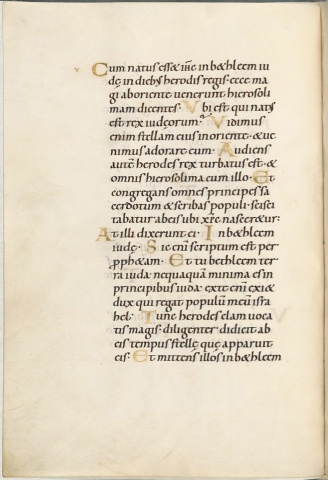 Cum natus ess& ihc in b&hleem iu
dę in dieb; herodis regis· ecce ma
gi ab oriente uenerunt hierosoli
mam dicentes· Vbi est qui natus
est rex iudęorum· Vidimus
enim stellam eius in oriente· & ue
nimus adorare eum· Audiens
autem herodes rex turbatus est· &
omnis hierosolima cum illo· Et
congregans omnes principes sa
cerdotum & scribas populi· scisci
tabatur ab eis ubi xpc nasceretur·
At illi dixerunt ei· In b&hleem
iudę· Sic enim scriptum est per
pph&am· Et tu b&hleem ter
ra iuda· nequaquam minima es in
principibus iuda· ex te enim exi&
dux qui regat populum meum isra
hel· Tunc herodes clam uoca
tis magis· diligenter didicit ab
eis tempus stellę quę apparuit
eis· Et mittens illos in b&hleem